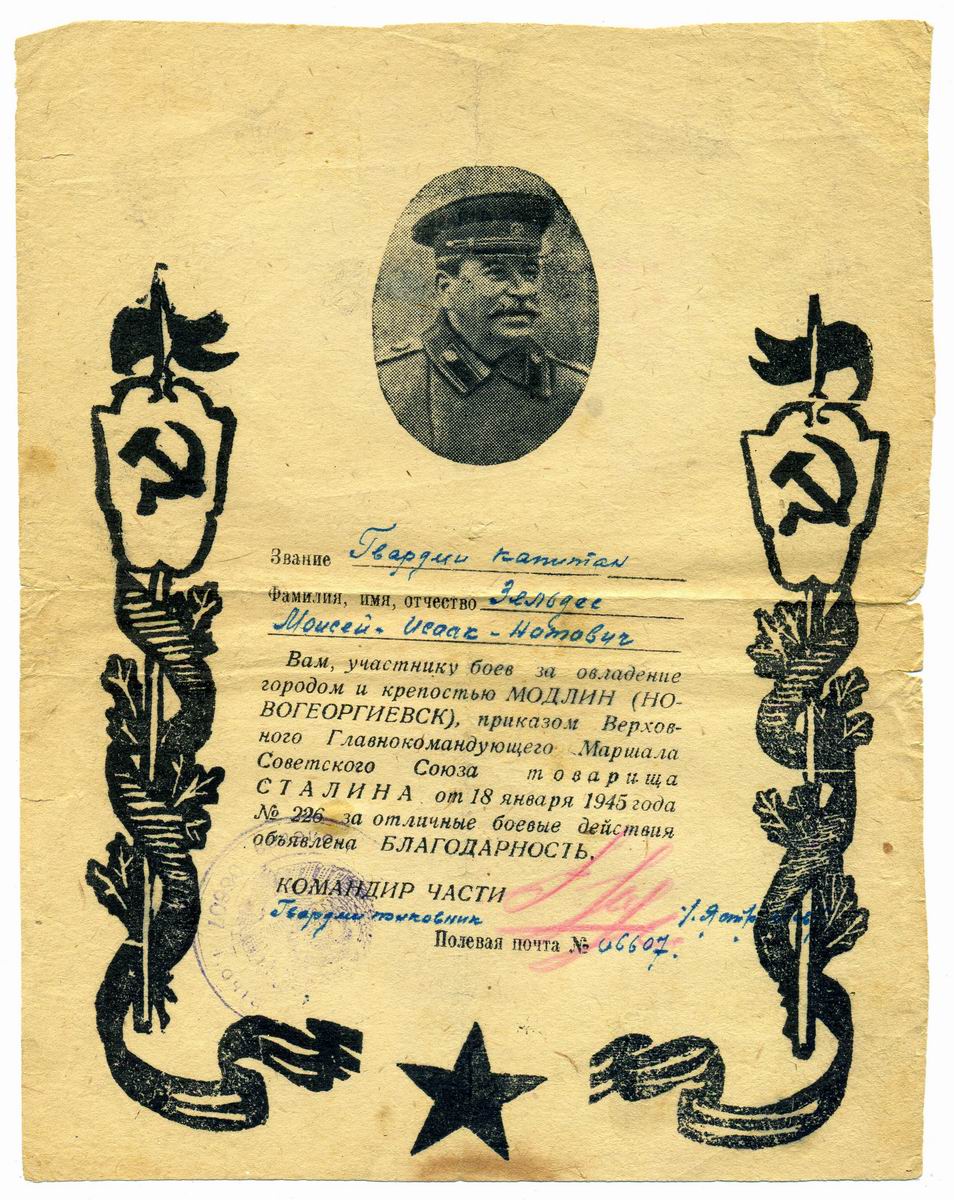 Звание Гвардии капитан
Фамилия, имя, отчество Зельдес
Моисей-Исаак-Нотович
Вам, участнику боев за овладение
городом и крепостью МОДЛИН (НО-
ВОГЕОРГИЕВСК), приказом Верхов-
ного Главнокомандующего Маршала
Советского Союза товарища
СТАЛИНА от 18 января 1945 года
№ 226 за отличные боевые действия
объявлена БЛАГОДАРНОСТЬ.
КОМАНДИР ЧАСТИ
Гвардии полковник
Полевая почта № 06607.